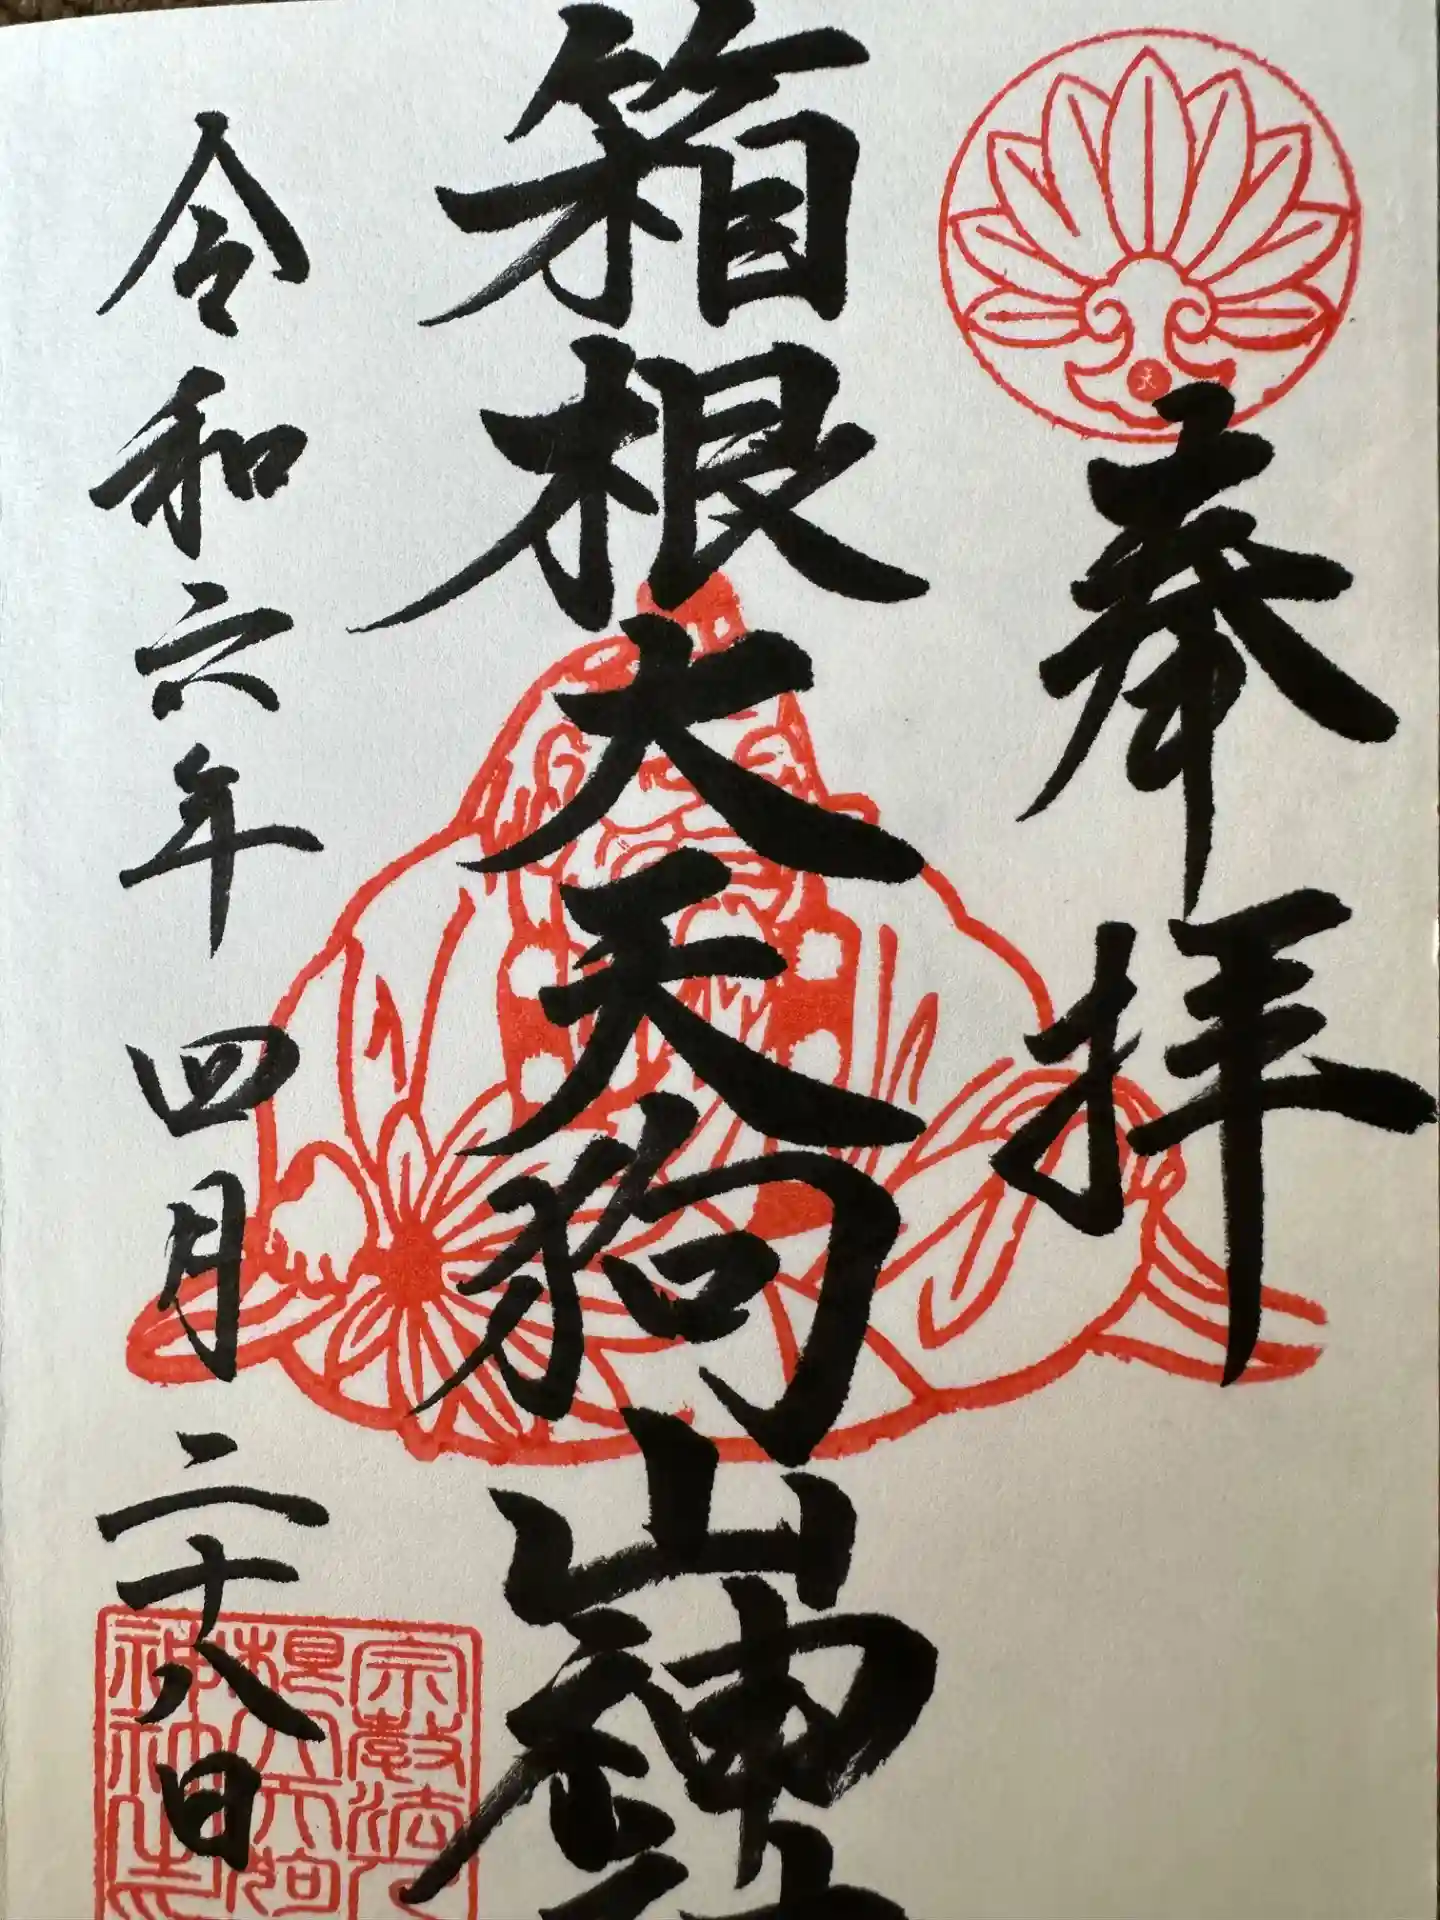 奉拝
箱根大天狗山神
令和六年四月二十八日
宗教法人
根大天狗
神